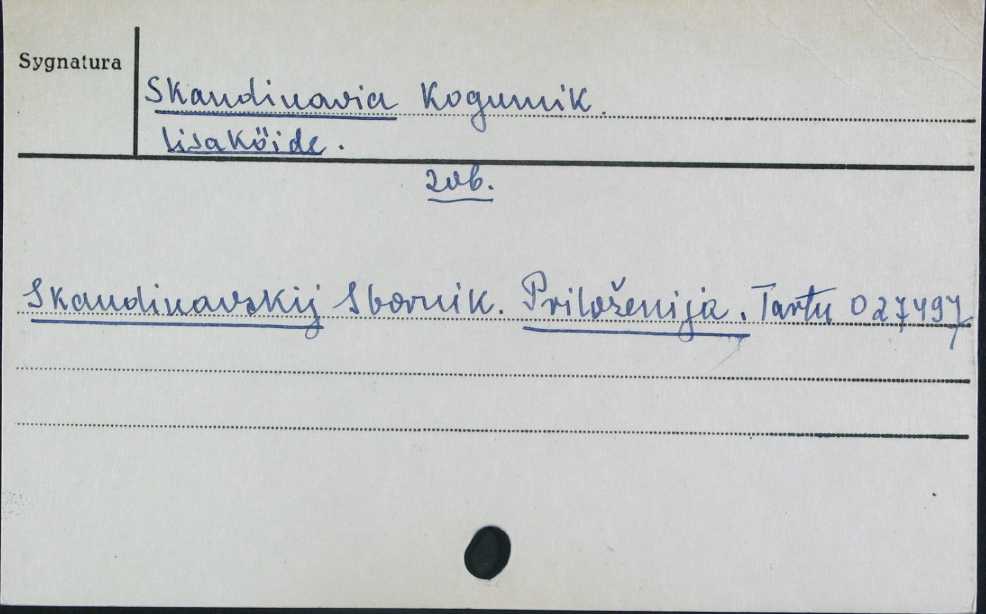 Sygnatura
Skandinavia Kogumik.
Lisaköide.
zob.
Skandinavskij Sbornik. Priloženija. Tartu 027497